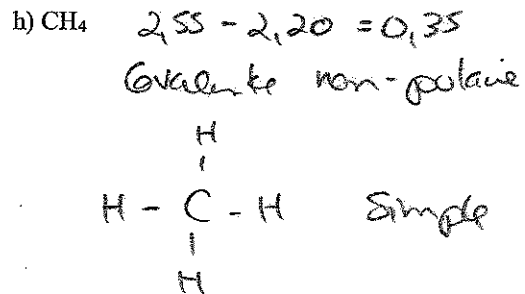 h) CH4 2,55 - 2,20 = 0,35
Covalente non-polaire
H
H - C - H Simple
H